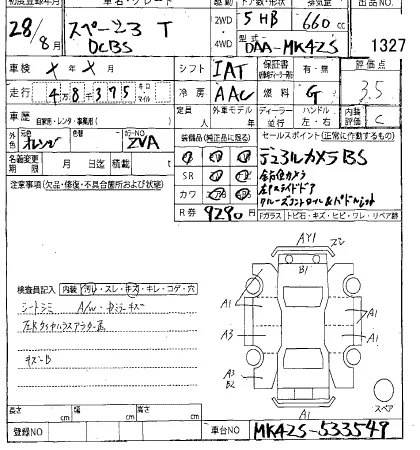 初度登録年月 車名・グレード 駆動 ドア数・形状 排気量 出品NO
28/8月 スペーシア T DCBS 2WD 4WD 5HB 660cc
型式 DAA-MK42S 1327
車検 年 月 シフト IAT 保証書 有・無 評価点
走行 4万8千375 キロ マイル 冷房 AAC 燃料 G 3.5
車歴 自家用・レンタ・事業用( ) 定員 人 外車モデル 年 ディーラー 並行 ハンドル 左・右 内装評価 C
外色 元色 オレンジ 色替 カラーNO ZVA 装備品(純正品に限る) セールスポイント(正常に作動するもの)
名義変更期限 月 日迄 積載 t デュアルカメラBS
SR 全方位カメラ
注意事項(欠品・修復・不具合箇所および状態) カワ 左Pスライドドア
クルーズコントロール&パドルシフト
R券 9290円 Fガラス トビ石・キズ・ヒビ・ワレ・リペア跡
AY1
B1
検査員記入 内装 汚れ・スレ・キズ・キレ・コゲ・穴
シートシミ
A1 A1
A1
A3 A1
キズB
A3
B2
スペア
A1
長さ cm 幅 cm 高さ cm
登録NO 車台NO MK42S-533549